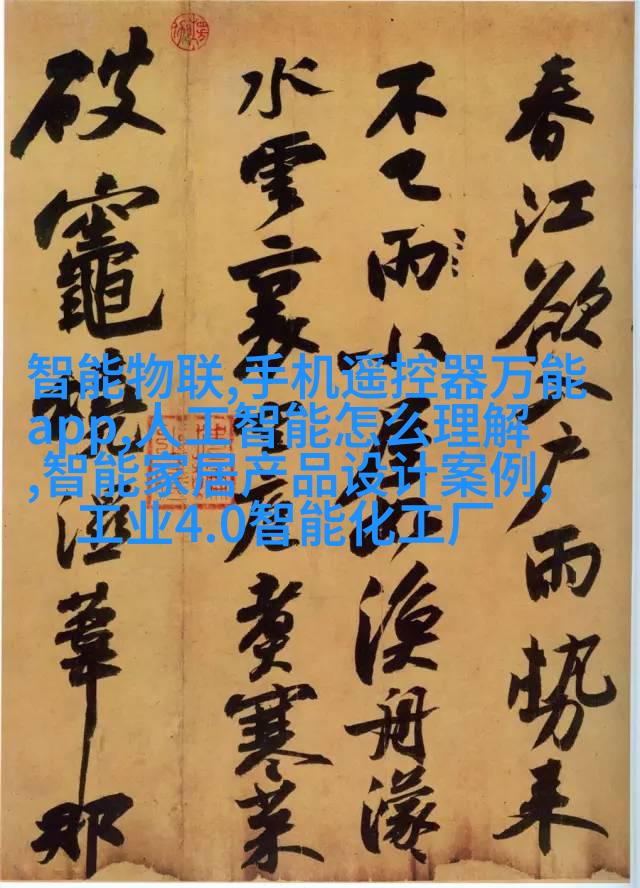 春江欲入户雨勢来
不已雨小屋漁舟濛
水雲裏庖煮寒菜
破竈濕葦那
智能物联,手机遥控器万能
app,人工智能怎么理解
,智能家居产品设计案例,
工业4.0智能化工厂